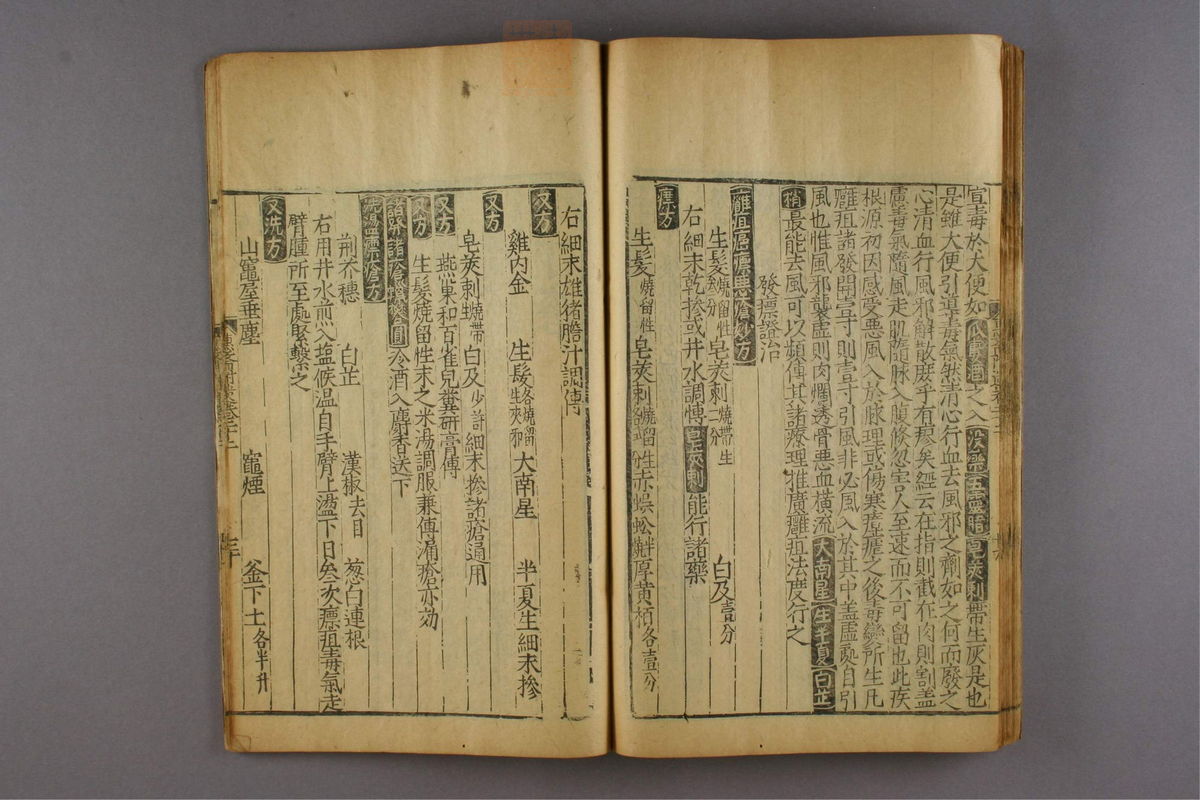 宣毒於大便如瓜蔞酒之入没藥五靈脂皂莢刺帶生灰是也
是雖大便引導毒氣然清心行血去風邪之劑如之何而廢之
心清血行風邪解散庶乎有瘳矣經云在指則截在肉則割蓋
慮毒氣隨風走肌隨脉入腹倏忽害人至速而不可留也此疾
根源初因感受悪風入於脉理或傷寒瘧之後毒變所生凡
癰疽諸發開壹寸則壹寸引風非必風入於其中盖虚處自引
風也惟風邪襲虚則肉爛透骨悪血横流大南星生半夏白芷
梢最能去風可以頻傅其諸療理推廣癰疽法度行之
發瘭證治
癰疽瘭悪瘡妙方
生髮燒留性分皂莢刺燒帶生分 白及壹分
右細末乾摻或井水調傅皂莢刺能行諸藥
瘭方
生髮燒留性皂莢刺燒留性赤蜈蚣半厚黄栢各壹分
右細末雄猪膽汁調傅
又方
雞内金 生髮各燒留生夾邪大南星 半夏生細末摻
又方
皂莢刺燒帶生白及少許細末摻諸瘡通用
又方
燕巢和百雀兒糞研膏傅
又方
生髮燒留性末之米湯調服兼傅漏瘡亦効
諸瘡圓冷酒入麝香送下
洗瘭瘡方
荊芥穗 白芷 漢椒去目 葱白連根
右用井水煎入塩候温自手臂上盪下日叁次瘭疽毒氣走
臂腫所至處緊繫之
又洗方
山竈屋垂塵 竈煙 釜下土各半升